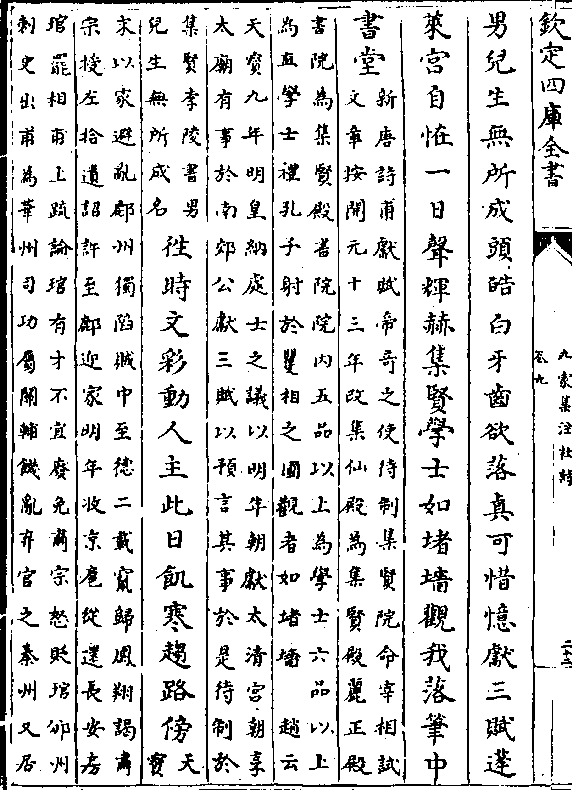 欽定四庫全書
男兒生無所成頭皓白牙齒欲落真可惜憶獻三賦蓬
萊宮自怪一日聲輝赫集賢學士如堵墻觀我落筆中
書堂
新唐詩甫獻賦帝奇之使待制集賢院命宰相試
文章按開元十三年改集仙殿為集賢殿麗正殿
書院為集賢殿書院院內五品以上為學士六品以上
為直學士禮孔子射於矍相之圃觀者如堵墻 趙云
天寶九年明皇納處士之議以明年朝獻太清宮朝享
太廟有事於南郊公獻三賦以預言其事於是待制於
集賢李陵書男
兒生無所成名
往時文彩動人主此日飢寒趨路傍
天
寶
末以家避亂鄜州獨陷賊中至德二載竄歸鳳翔謁肅
宗授左拾遺詔許至鄜迎家明年收京扈從還長安房
琯罷相甫上疏論琯有才不宜廢免肅宗怒貶琯邠州
刺史出甫為華州司功屬關輔饑亂弃官之秦州又居
九家集注杜詩
卷九